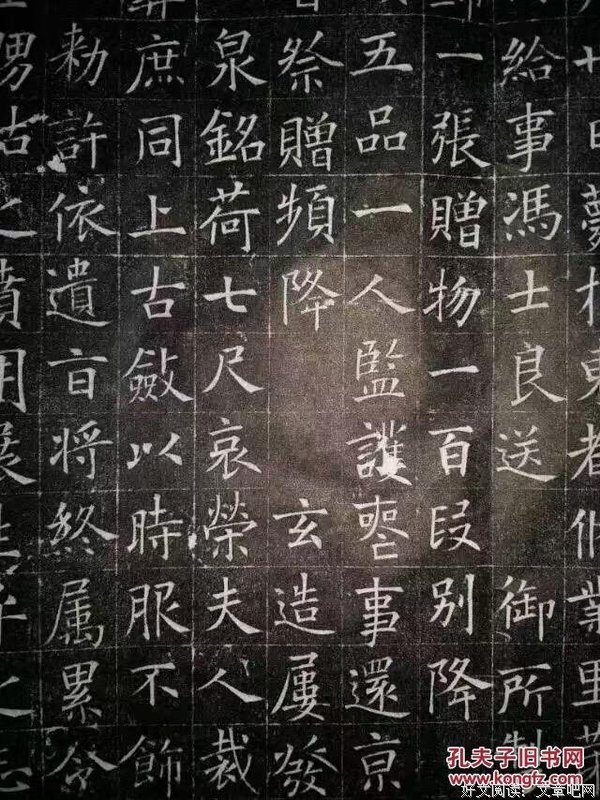 廿日薨於東都脩業里第
給事馮士良送 御所制
一張贈物一百段別降
五品一人監護喪事還京
祭贈頻降 玄造屢發
泉銘荷七尺哀榮夫人裁
庶同上古斂以時服不飾
勑許依遺旨將終属累令
之墳用展生平之志
孔夫子旧书网
www.kongfz.com
好文阅读：文章吧网